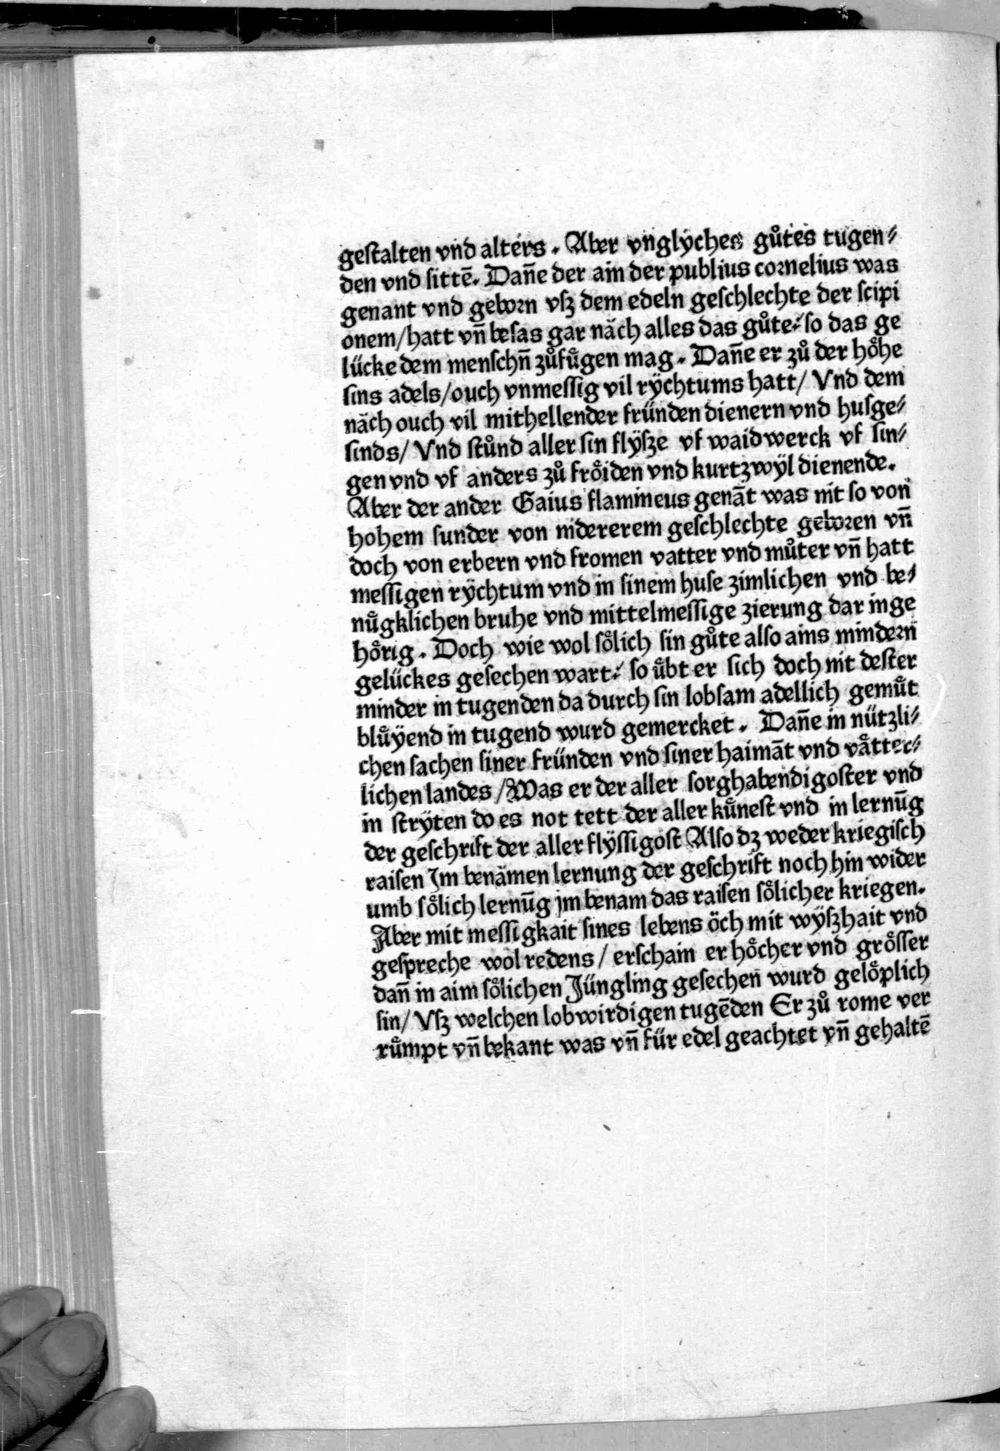 gestalten vnd alters . Aber vnglyches gůtes tugen⸗
den vnd sittē. Dan̄e der ain der publius cornelius was
genant vnd geborn vsz dem edeln geschlechte der scipi
onem/hatt vn̄ besas gar näch alles das gůte/ so das ge
lücke dem menschn̄ zůfůgen mag . Dan̄e er zů der hőhe
sins adels/ouch vnmessig vil rÿchtums hatt/ Vnd dem
näch ouch vil mithellender fründen dienern vnd husge⸗
sinds/ Vnd stůnd aller sin flÿsze vf waidwerck vf sin⸗
gen vnd vf anders zů frőiden vnd kurtzwÿl dienende.
Aber der ander Gaius flamineus genāt was nit so von
hohem sunder von nidererem geschlechte geboren vn̄
doch von erbern vnd fromen vatter vnd můter vn̄ hatt
messigen rÿchtum vnd in sinem huse zimlichen vnd be⸗
nůgklichen bruhe vnd mittelmessige zierung dar inge
hőrig . Doch wie wol sőlich sin gůte also ains mindern
gelückes gesechen wart/ so ůbt er sich doch nit dester
minder in tugenden da durch sin lobsam adellich gemůt
blůÿend in tugend wurd gemercket . Dan̄e in nützli⸗
chen sachen siner fründen vnd siner haimāt vnd vätter⸗
lichen landes /Was er der aller sorghabendigoster vnd
in strÿten do es not tett der aller kůnest vnd in lernūg
der geschrift der aller flÿssigost Also dz weder kriegisch
raisen Jm benämen lernung der geschrift noch hin wider
umb sőlich lernūg jm benam das raisen sőlicher kriegen.
Aber mit messigkait sines lebens öch mit wÿszhait vnd
gespreche wol redens / erschain er hőcher vnd grősser
dan̄ in aim sőlichen Jüngling gesechen wurd gelőplich
sin/ Vsz welchen lobwirdigen tugēden Er zů rome ver
růmpt vn̄ bekant was vn̄ für edel geachtet vn̄ gehaltē